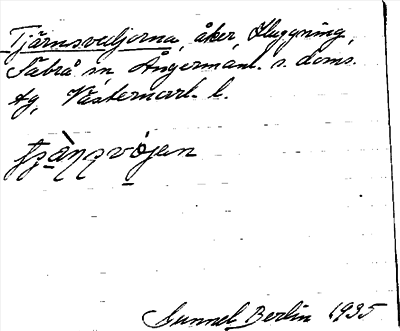 Tjärnsvedjorna, åker, Huggning,
Säbrå sn Ångermanl. s. doms.
tg, Västernorrl. l.
Gunnel Berlin 1935